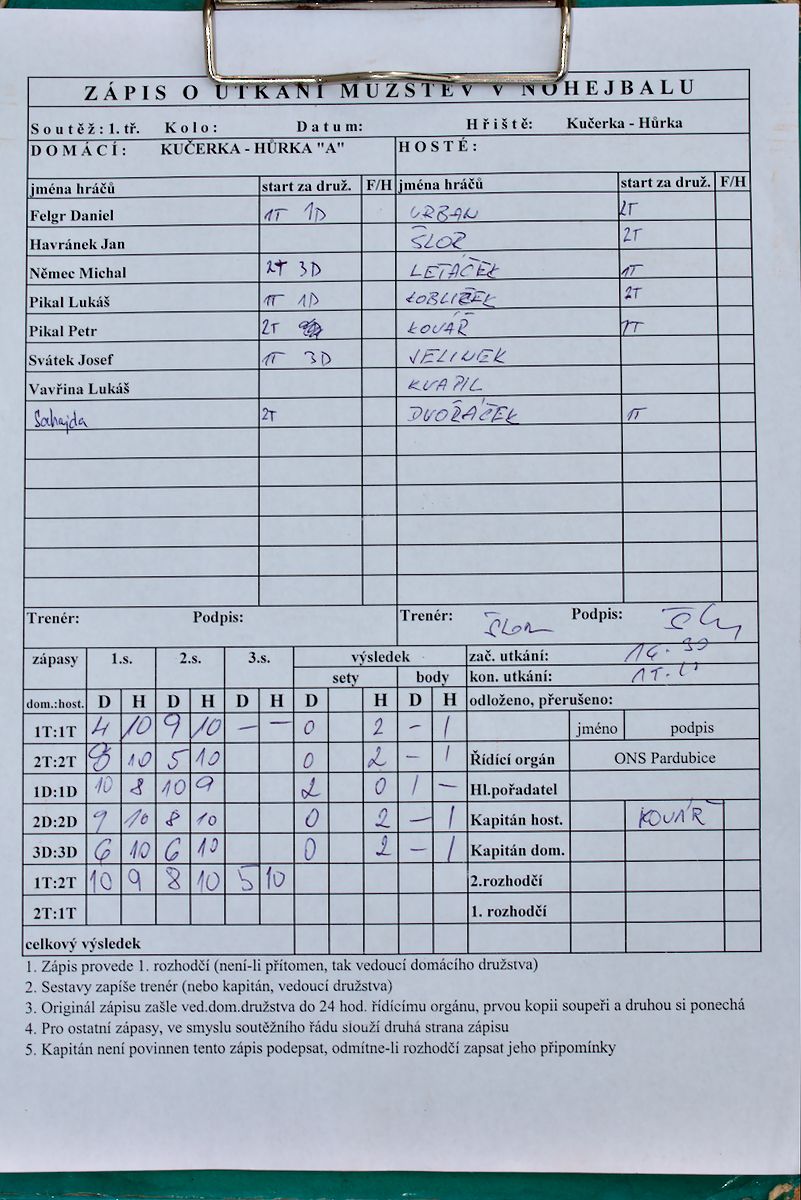 ZÁPIS O UTKÁNÍ MUŽSTEV V NOHEJBALU
Soutěž: 1. tř. Kolo: Datum: Hřiště: Kučerka - Hůrka
DOMÁCÍ: KUČERKA - HŮRKA "A" HOSTÉ:
jména hráčů start za druž. F/H jména hráčů start za druž. F/H
Felgr Daniel 1T 1D URBAN 2T
Havránek Jan ŠLOR 2T
Němec Michal 2T 3D LETÁČEK 1T
Pikal Lukáš 1T 1D KOBLIŽEK 2T
Pikal Petr 2T KOVÁŘ 1T
Svátek Josef 1T 3D JELINEK
Vavřina Lukáš KVAPIL
Sochajda 2T DVOŘÁČEK 1T
Trenér: Podpis: Trenér: ŠLOR Podpis:
zápasy 1.s. 2.s. 3.s. výsledek zač. utkání: 14.30
sety body kon. utkání:
dom.:host. D H D H D H D H D H odloženo, přerušeno:
1T:1T 4 10 9 10 – – 0 2 – 1 jméno podpis
2T:2T 8 10 5 10 0 2 – 1 Řídící orgán ONS Pardubice
1D:1D 10 8 10 9 2 0 1 – Hl.pořadatel
2D:2D 9 10 8 10 0 2 – 1 Kapitán host. KOVÁŘ
3D:3D 6 10 6 10 0 2 – 1 Kapitán dom.
1T:2T 10 9 8 10 5 10 2.rozhodčí
2T:1T 1. rozhodčí
celkový výsledek
1. Zápis provede 1. rozhodčí (není-li přítomen, tak vedoucí domácího družstva)
2. Sestavy zapíše trenér (nebo kapitán, vedoucí družstva)
3. Originál zápisu zašle ved.dom.družstva do 24 hod. řídícímu orgánu, prvou kopii soupeři a druhou si ponechá
4. Pro ostatní zápasy, ve smyslu soutěžního řádu slouží druhá strana zápisu
5. Kapitán není povinnen tento zápis podepsat, odmítne-li rozhodčí zapsat jeho připomínky